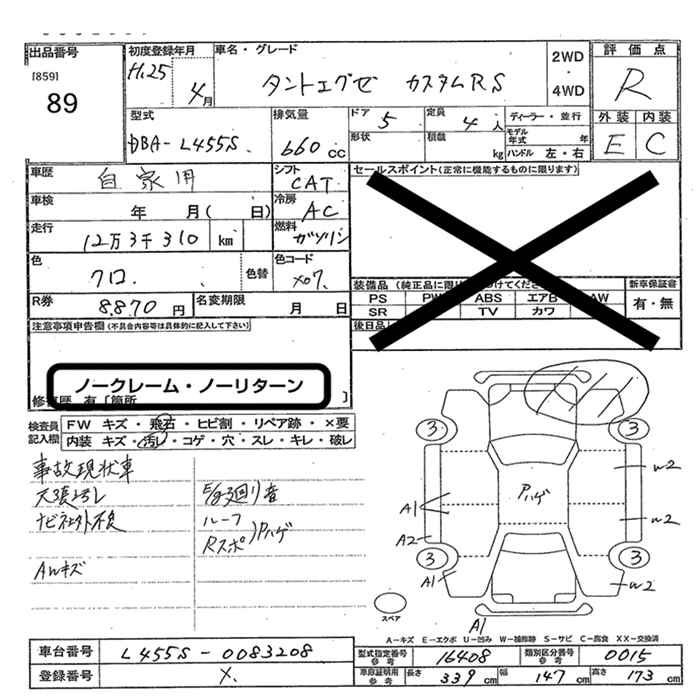 出品番号 初度登録年月 車名・グレード 2WD 評価点
[859] H.25 4月 タントエグゼ カスタムRS ・ R
89 4WD
型式 排気量 ドア 5 定員 4人 ディーラー・並行 外装 内装
DBA-L455S. 660cc 形状 積載 kg モデル年式 年 E C
ハンドル 左・右
車歴 自家用 シフト CAT セールスポイント(正常に機能するものに限ります)
車検 年 月( 日) 冷房 AC
走行 12万3千310 km 燃料 ガソリン
色 クロ. 色替 色コード X07. 装備品 (純正品に限り 付けてください) 新車保証書
R券 8,870円 名変期限 月 日 PS PW ABS エアB AW 有・無
SR TV カワ
注意事項申告欄(不具合内容等は具体的に記入して下さい) 後日品
ノークレーム・ノーリターン
修復歴 有 [箇所 ]
検査員 FW キズ・飛石・ヒビ割・リペア跡・×要
記入欄 内装 キズ・汚レ・コゲ・穴・スレ・キレ・破レ
事故現状車
天張汚レ E/g廻り音
ナビ社外不良 ルーフ
Rスポ Pハゲ
AWキズ
3 3
W2
Pハゲ
A1 W2
A2
3 3
A1 W2
スペア
A1
A-キズ E-エクボ U-凹み W-補修跡 S-サビ C-腐食 XX-交換済
車台番号 L455S-0083208 型式指定番号 参考 16408 類別区分番号 参考 0015
登録番号 X. 車庫証明用 参考 長さ 339cm 幅 147cm 高さ 173cm